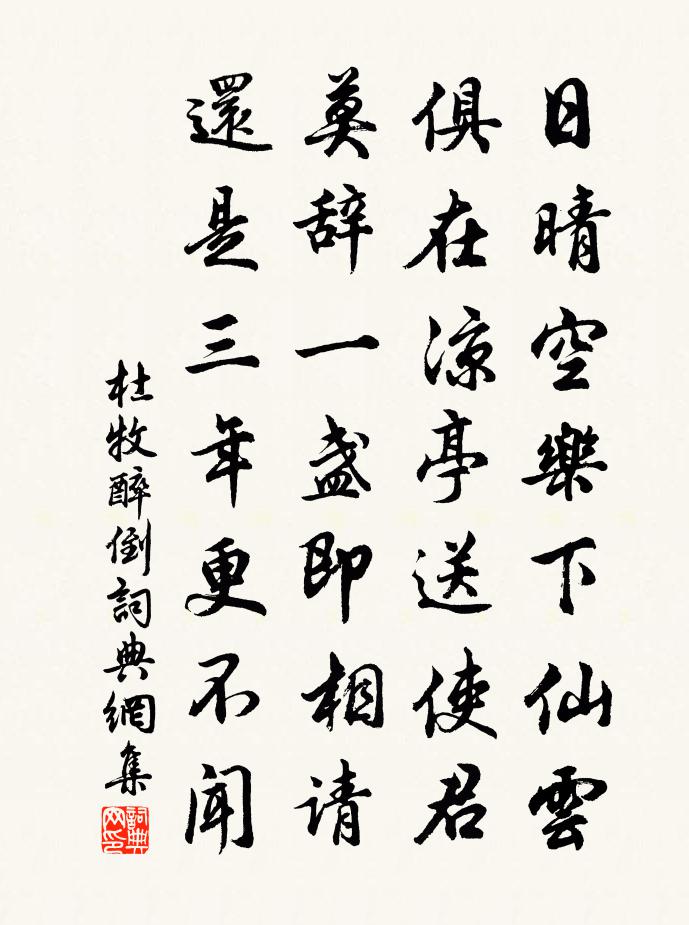 日晴空樂下仙雲
俱在涼亭送使君
莫辞一盏即相请
還是三年更不聞
杜牧醉倒詞典網集
詞典网印